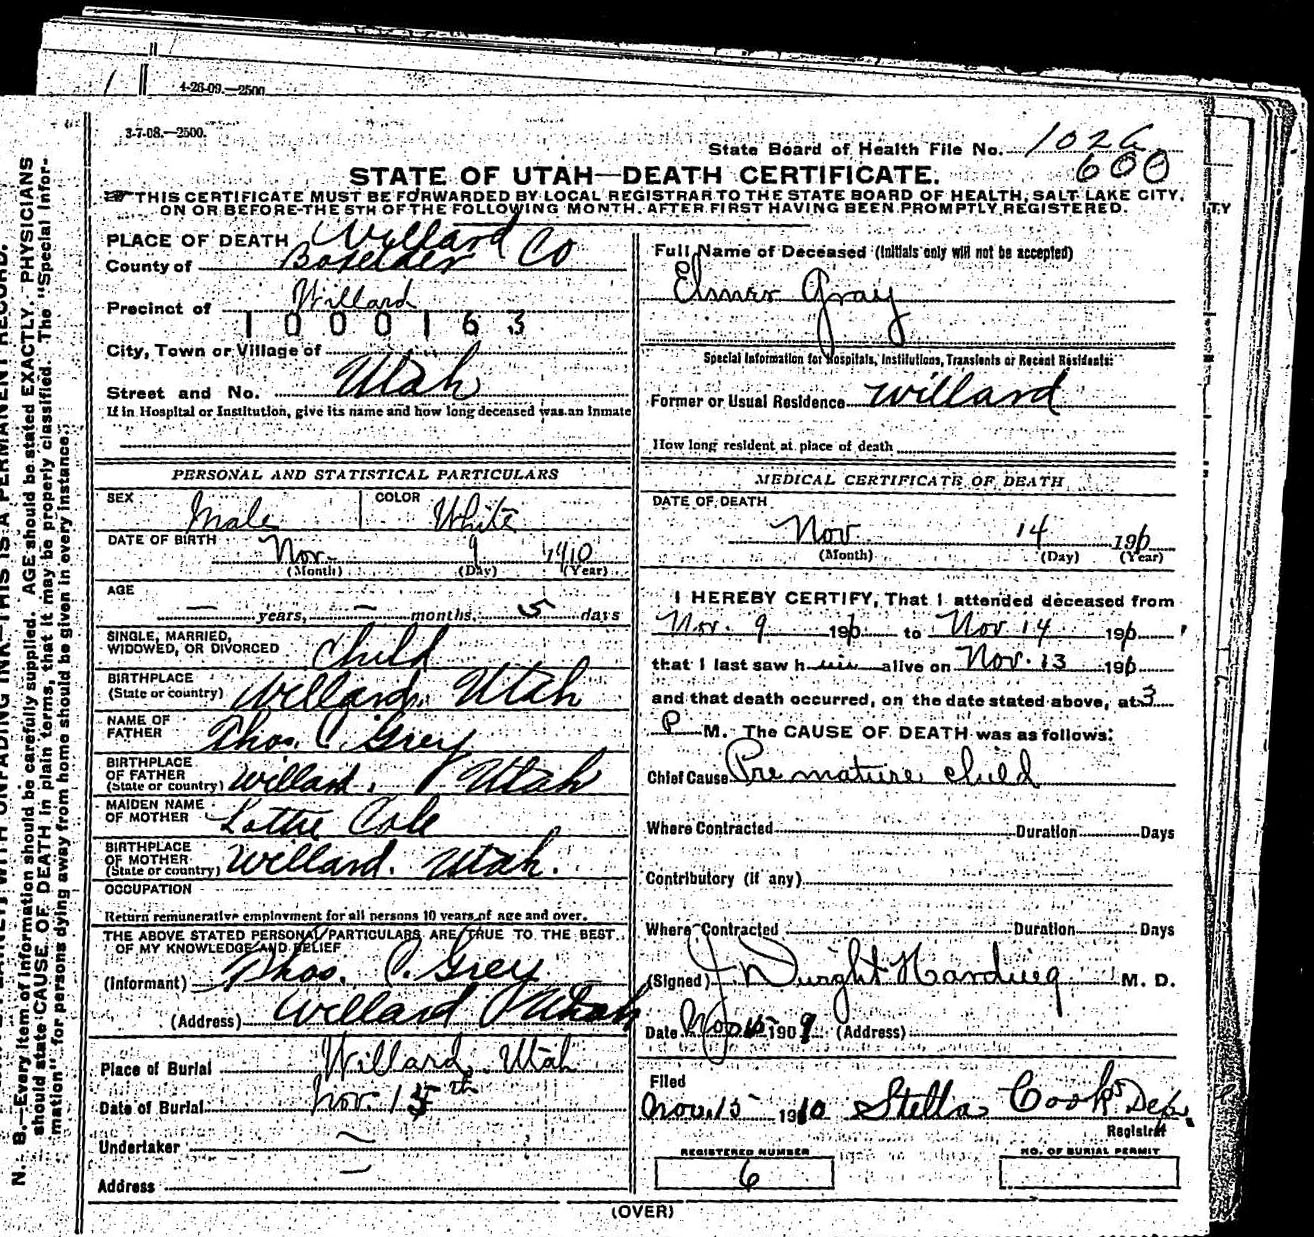 4-26-09.—2500
3-7-08.—2500.
State Board of Health File No. 102
600
STATE OF UTAH—DEATH CERTIFICATE.
THIS CERTIFICATE MUST BE FORWARDED BY LOCAL REGISTRAR TO THE STATE BOARD OF HEALTH, SALT LAKE CITY,
ON OR BEFORE THE 5TH OF THE FOLLOWING MONTH. AFTER FIRST HAVING BEEN PROMPTLY REGISTERED.
PLACE OF DEATH Willard
County of Boxelder Co
Precinct of Willard
1000163
City, Town or Village of
Street and No. Utah
If in Hospital or Institution, give its name and how long deceased was an inmate
PERSONAL AND STATISTICAL PARTICULARS
SEX Male COLOR White
DATE OF BIRTH Nov. 9 1910
(Month) (Day) (Year)
AGE
— years, — months, 5 days
SINGLE, MARRIED,
WIDOWED, OR DIVORCED Child
BIRTHPLACE
(State or country) Willard, Utah
NAME OF
FATHER Thos. C. Grey
BIRTHPLACE
OF FATHER
(State or country) Willard, Utah
MAIDEN NAME
OF MOTHER Lottie Cole
BIRTHPLACE
OF MOTHER
(State or country) Willard. Utah.
OCCUPATION
Return remunerative employment for all persons 10 years of age and over.
THE ABOVE STATED PERSONAL PARTICULARS ARE TRUE TO THE BEST
OF MY KNOWLEDGE AND BELIEF
(Informant) Thos. C. Grey
(Address) Willard Utah
Place of Burial Willard, Utah
Date of Burial Nov. 15th
Undertaker —
Address —
Full Name of Deceased (Initials only will not be accepted)
Elmer Gray
Special Information for Hospitals, Institutions, Transients or Recent Residents:
Former or Usual Residence Willard
How long resident at place of death
MEDICAL CERTIFICATE OF DEATH
DATE OF DEATH
Nov 14 1910
(Month) (Day) (Year)
I HEREBY CERTIFY, That I attended deceased from
Nov. 9 1910 to Nov 14 1910,
that I last saw him alive on Nov. 13 1910
and that death occurred, on the date stated above, at 3
P M. The CAUSE OF DEATH was as follows:
Chief Cause Premature child
Where Contracted Duration Days
Contributory (if any)
Where Contracted Duration Days
(Signed) J. Dwight Harding M. D.
Date Nov 15 1909 (Address)
Filed
Nov. 15 1910 Stella Cook Dep.
Registrar
REGISTERED NUMBER
6
NO. OF BURIAL PERMIT
(OVER)
N. B.—Every item of information should be carefully supplied. AGE should be stated EXACTLY. PHYSICIANS
should state CAUSE OF DEATH in plain terms, that it may be properly classified. The "Special Infor-
mation" for persons dying away from home should be given in every instance.